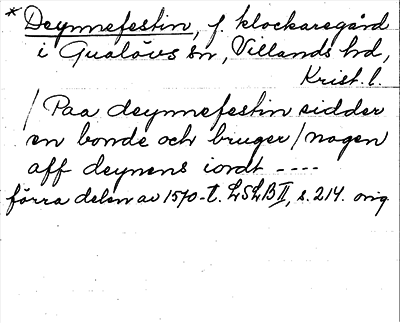 * Deynnefestin, f. klockaregård
i Gualövs sn, Villands hd,
Krist. l.
/ Paa deynnefestin sidder
en bonde och bruger / nogen
aff deynens iordt ----
förra delen av 1570-t. LSLB II, s. 214. orig